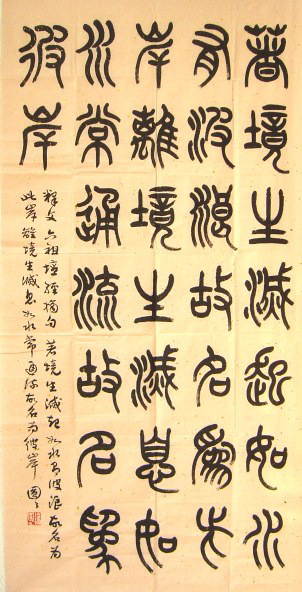 著境生滅起如水
有波浪故名為此
岸離境生滅息如
水常通流故名為
彼岸
釋文 六祖壇經摘句 著境生滅起如水有波浪故名為
此岸離境生滅息如水常通流故名為彼岸